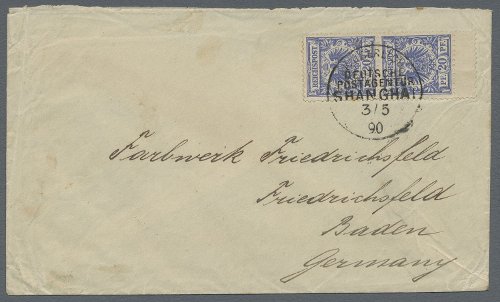 REICHSPOST
20 PF. 20
KAISERL.
DEUTSCHE
POSTAGENTUR
SHANGHAI
3/5
90
Farbwerk Friedrichsfeld
Friedrichsfeld
Baden
Germany